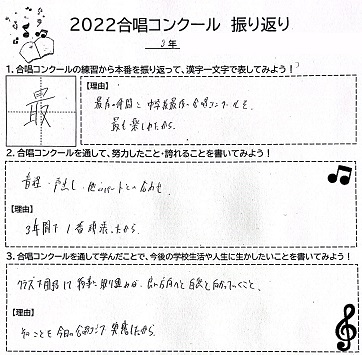 2022合唱コンクール 振り返り
3年
1. 合唱コンクールの練習から本番を振り返って、漢字一文字で表してみよう！
最
【理由】
最高の仲間と中学最後の合唱コンクールを
最も楽しめたから。
2. 合唱コンクールを通して、努力したこと・誇れることを書いてみよう！
音程・声出し・他のパートとの合わせ
【理由】
3年間で1番頑張ったから。
3. 合唱コンクールを通して学んだことで、今後の学校生活や人生に生かしたいことを書いてみよう！
クラスで団結して物事に取り組めば、良い方向へと自然と向かっていくこと。
【理由】
そのことを今回の合唱コンで実感したから。